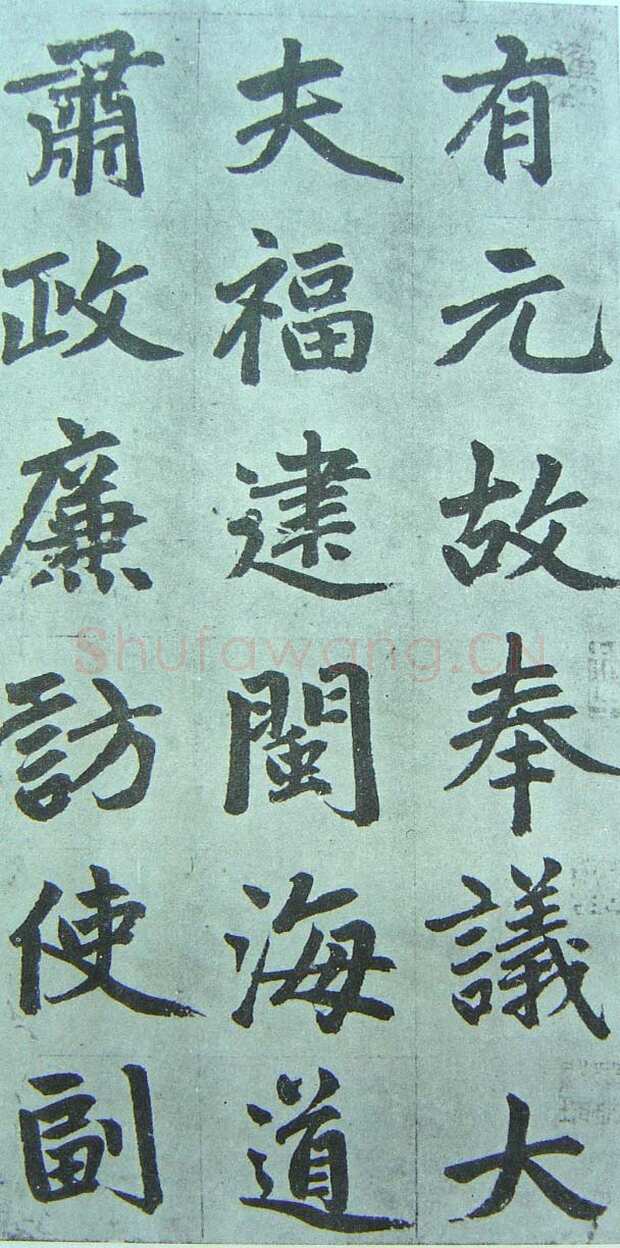 有元故奉議大
夫福建閩海道
肅政廉訪使副
Shufawang.CN